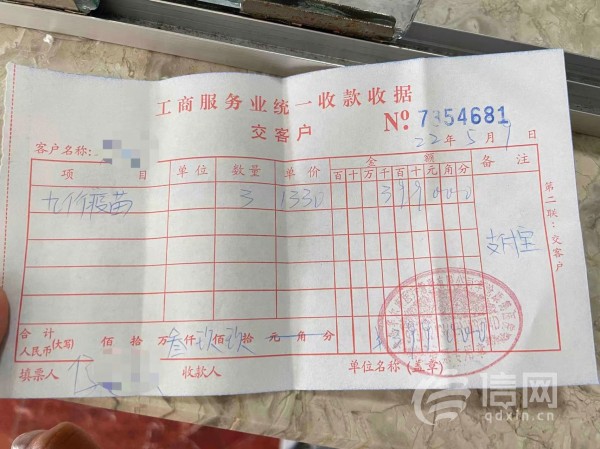 工商服务业统一收款收据
交客户
№ 7354681
22年5月9日
客户名称:
项目 单位 数量 单价 金额 备注
百十万千百十元角分
九价疫苗 3 1330 399000
支付宝
第二联:交客户
合计人民币(大写) 佰 拾 万叁仟玖佰玖拾元角分 ¥399000
填票人 收款人 单位名称(盖章)
信网
qdxin.cn